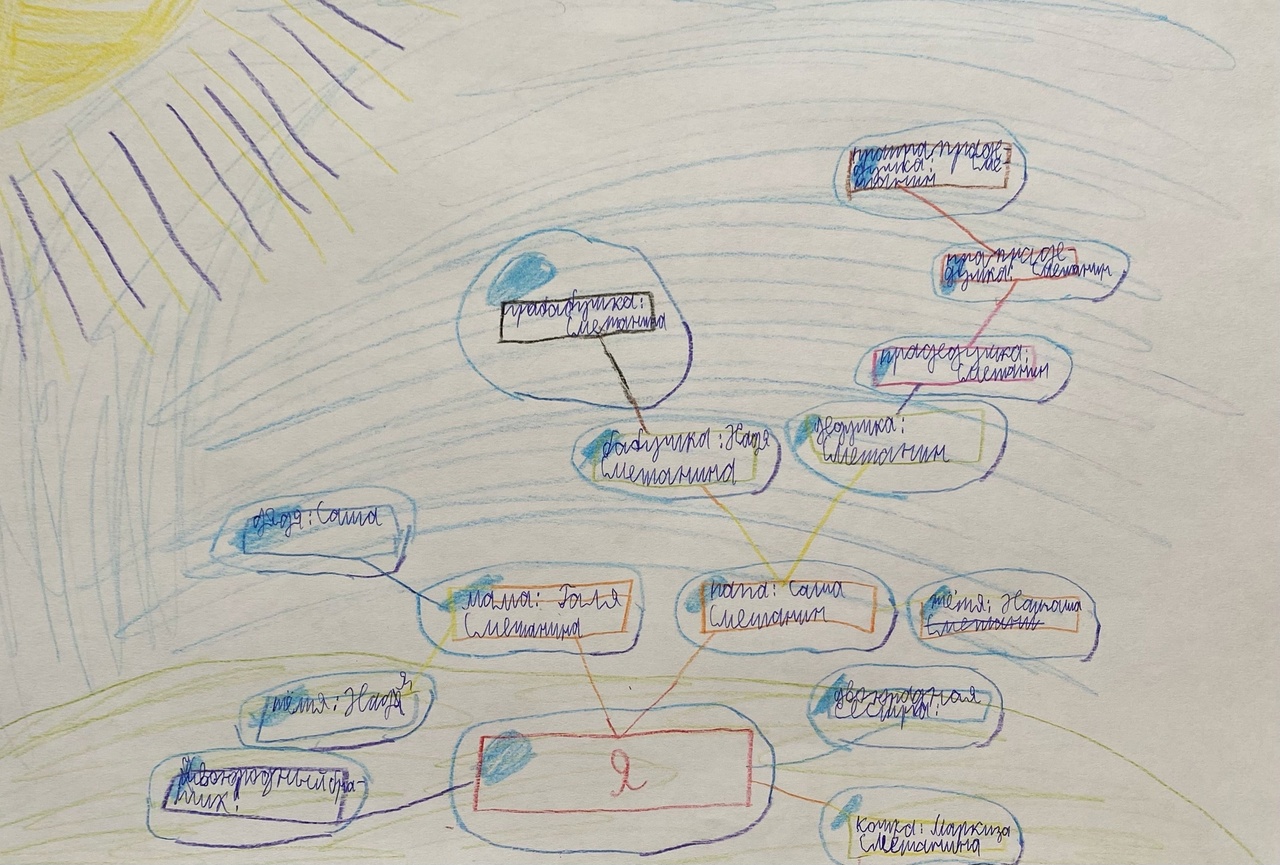 прапра праде-
душка: Сме
танин
прапраде-
душка: Сметанин
прабабушка:
Сметанина
прадедушка:
Сметанин
бабушка: Надя
Сметанина
дедушка:
Сметанин
дядя: Саша
мама: Галя
Сметанина
папа: Саша
Сметанин
тётя: Наташа
тётя: Надя
двоюродная
сестра:
Я
двоюродный бра-
тик:
кошка: Маркиза
Сметанина